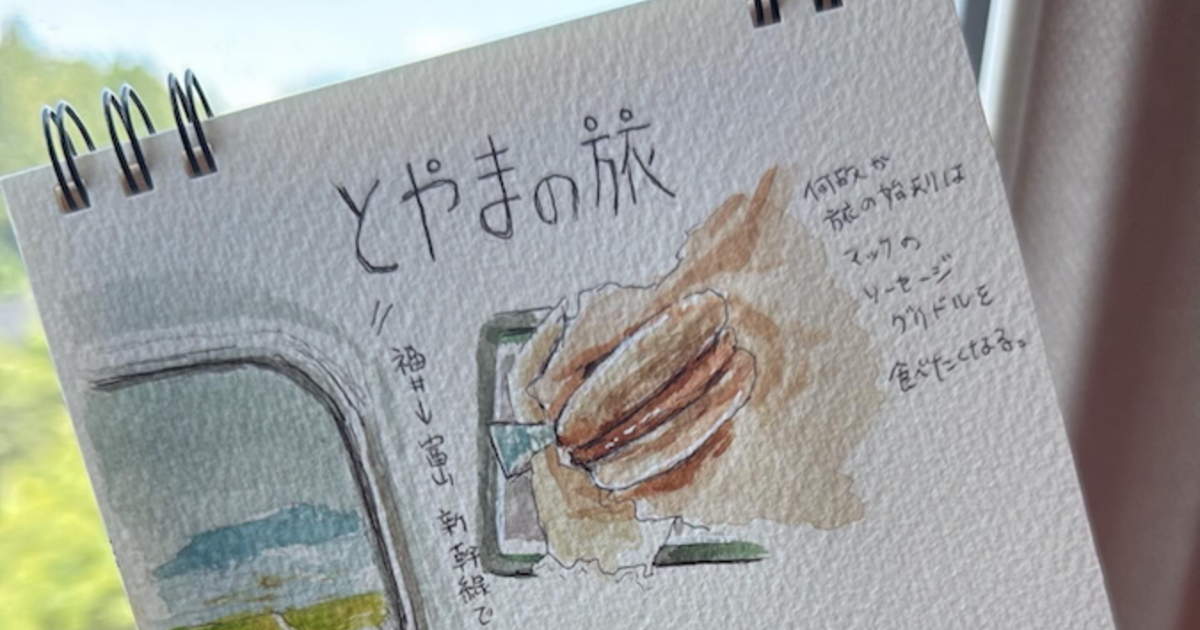 とやまの旅
福井→富山 新幹線で
何故か
旅の始まりは
マックの
ソーセージ
グリドルを
食べたくなる。